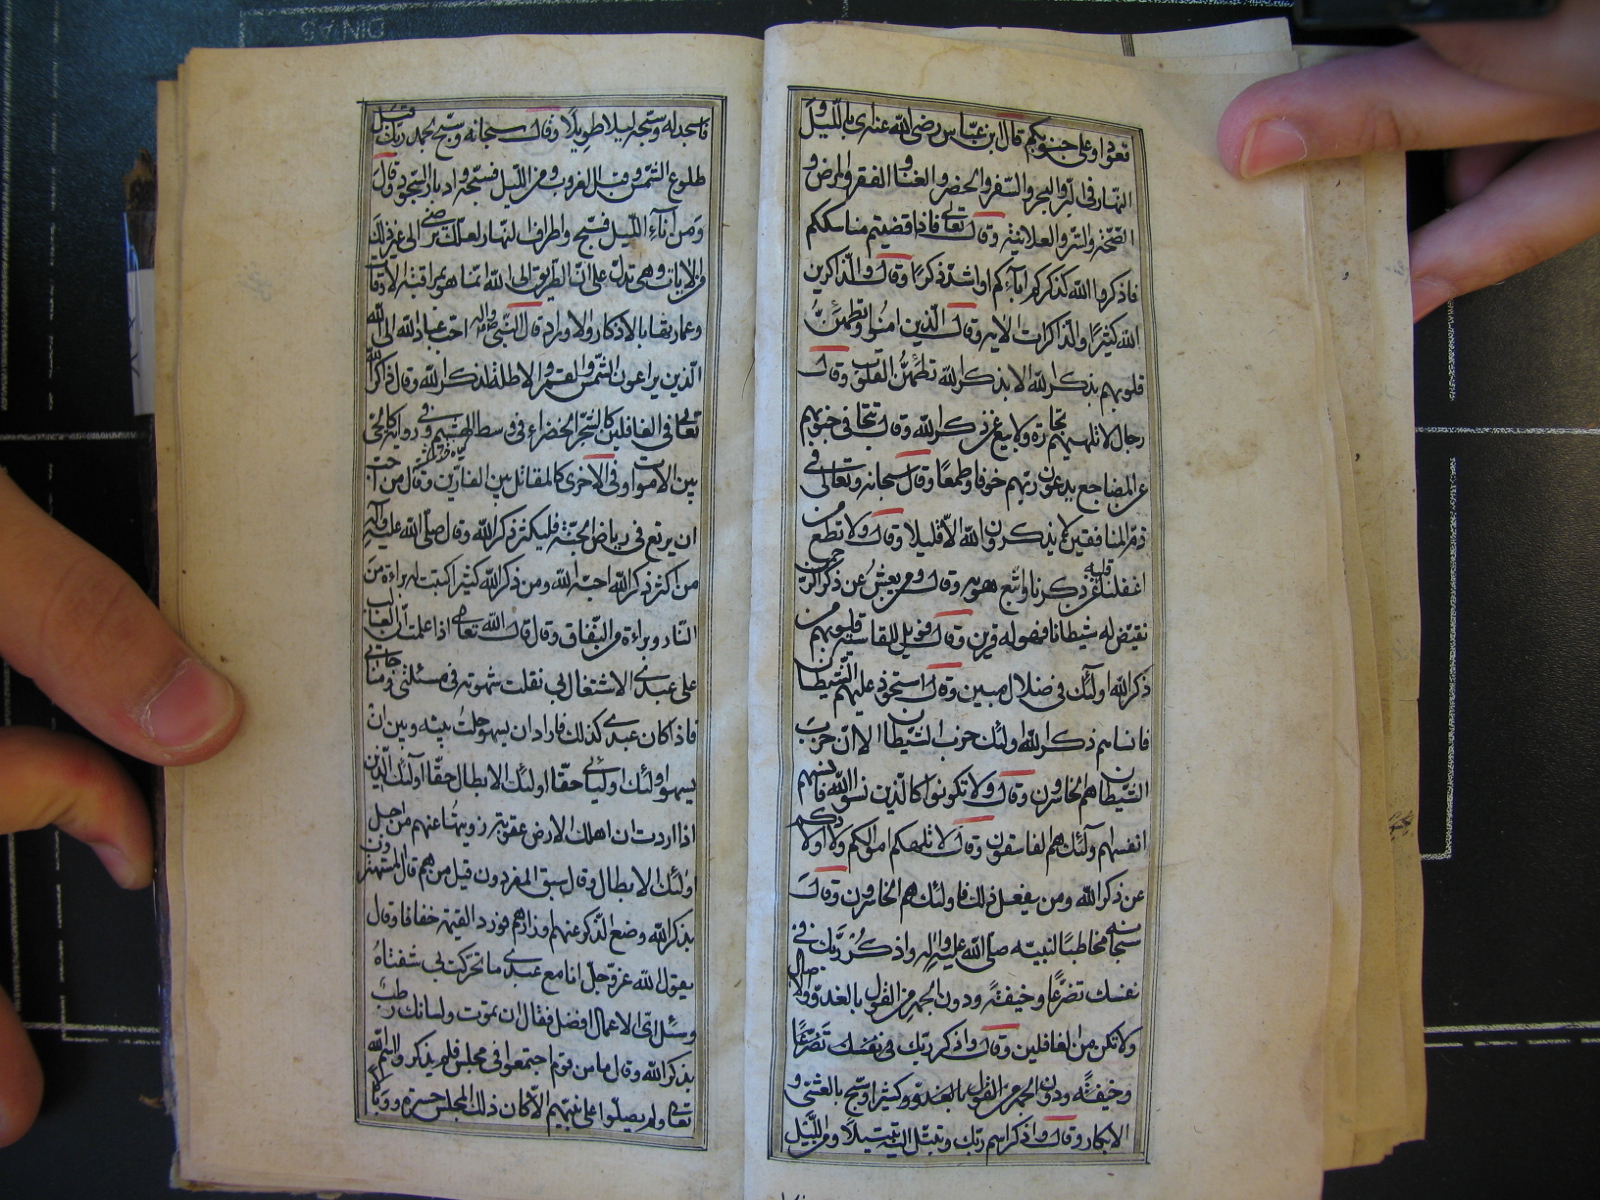 قعودا وعلى جنوبكم قال بن عبّاس رضى الله عنه اى بالليل و
النهار فى البر والبحر والسّفر والحضر والغنا والفقر والمرض و
الصّحّة والسّر والعلانية وقال تعالى فاذا قضيتم مناسككم
فاذكروا الله كذكركم اباءكم او اشدّ ذكرًا وقال والذّاكرين
الله كثيرًا والذاكرات الاية وقال الّذين امنوا وتطمئنُّ
قلوبهم بذكر الله الا بذكر الله تطمئنُّ القلوب وقال
رجال لا تلهيهم تجارة ولا بيع عن ذكر الله وقال تتجافى جنوبهم
عن المضاجع يدعون ربّهم خوفا وطمعًا وقال سبحانه وتعالى فى
ذمّ المنافقين لا يذكرون الله الّا قليلا وقال ولا تطع من
اغفلنا قلبه عن ذكرنا واتّبع هويه وقال ومن يعش عن ذكر الرّحمن
نقيّض له شيطانا فهو له قرين وقال فويل للقاسية قلوبهم من
ذكر الله اولئك فى ضلال مبين وقال استحوذ عليهم الشّيطان
فانساهم ذكر الله اولئك حزب الشّيطان الا انّ حزب
الشّيطان هم الخاسرون وقال ولا تكونوا كالّذين نسوا الله فانسهم
انفسهم اولئك هم الفاسقون وقال لا تلهكم اموالكم ولا اولادكم
عن ذكر الله ومن يفعل ذلك فاولئك هم الخاسرون وقال
سبحانه مخاطبًا لنبيّه صلّى الله عليه واله واذكُر ربّك فى
نفسك تضرّعًا وخيفةً ودون الجهر من القول بالغدوّ والاصال
ولا تكن من الغافلين وقال واذكر ربّك فى نفسك تضرّعًا
وخيفةً ودون الجهر من القول بالغدوّ وكثيرا وسبّح بالعشىّ و
الابكار وقال واذكر اسم ربّك وتبتّل اليه تبتيلًا ومن اللّيل
فاسجد له وسبّحه ليلا طويلًا وقال سبحانه وسبّح بحمد ربّك قبل
طلوع الشّمس وقبل الغروب ومن اللّيل فسبّحه وادبار السّجود وقال
ومن آناءِ اللّيل فسبّح واطراف النهار لعلك ترضى الى غير ذلك
من الايات وهى تدلّ على انّ الطّريق الى الله انّما هو بمراقبة الاوقات
وعمارتها بالاذكار والاوراد قال النّبى ص واله احبّ عباد الله الى الله
الّذين يراعون الشّمس والقمر والاظلة لذكر الله وقال ذاكر الله
تعالى فى الغافلين كالشّجر الخضراء فى وسط الهشيم وفى رواية كالحىّ
بين الاموات وفى الاخرى كالمقاتل بين الفارّين وقال من احبّ
ان يرتع فى رياض الجنّة فليكثر ذكر الله وقال صلّى الله عليه واله
من اكثر ذكر الله احبّه الله ومن ذكر الله كثيرا كتبت له براءة من
النّار وبراءة من النّفاق وقال قال الله تعالى اذا علمت انّ الغالب
على عبدى الاشتغال بى نقلت شهوته فى مسئلتى ومناجاتى
فاذا كان عبدى كذلك فاراد ان يسهو حلتُ بينه وبين ان
يسهو اولئك اوليائى حقّا اولئك الابطال حقّا اولئك الّذين
اذا اردت ان اهلك الارض عقوبة زويتها عنهم من اجل
اولئك الابطال وقال سبق المفردون قيل من هم قال المستهترون
بذكر الله وضع الذّكر عنهم اوزارهم فورد القيمة خفافا وقال
يقول الله عزّ وجلّ انا مع عبدى ما تحرّكت بى شفتاهُ
وسئل اىّ الاعمال افضل فقال ان تموت ولسانك رطب
بذكر الله وقال ما من قوم اجتمعوا فى مجلس فلم يذكروا اسم الله
تعالى ولم يصلّوا على نبيّهم الّا كان ذلك المجلس حسرة ووبالًا